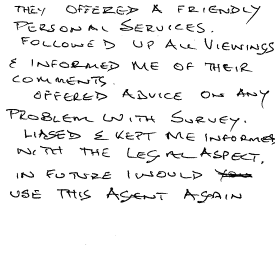 THEY OFFERED A FRIENDLY
PERSONAL SERVICES.
FOLLOWED UP ALL VIEWINGS
& INFORMED ME OF THEIR
COMMENTS.
OFFERED ADVICE ON ANY
PROBLEM WITH SURVEY.
LIASED & KEPT ME INFORMED
WITH THE LEGAL ASPECT.
IN FUTURE I WOULD
USE THIS AGENT AGAIN